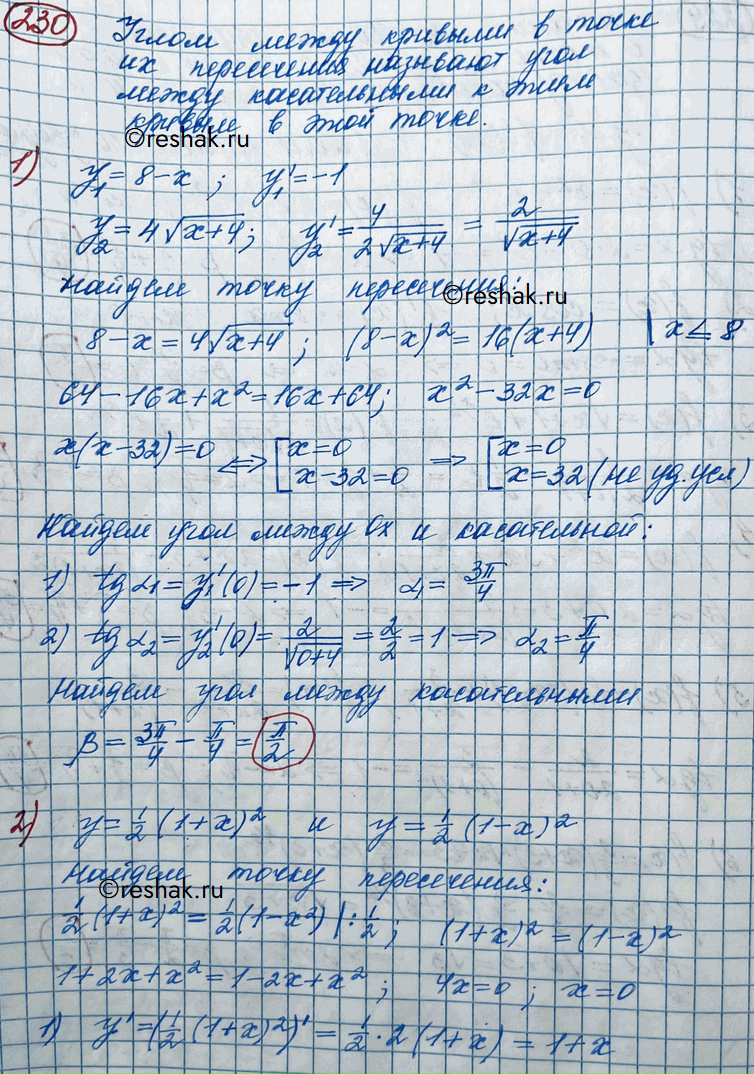 230
Углом между кривыми в точке
их пересечения называют угол
между касательными к этим
кривым в этой точке.
©reshak.ru
1)
y₁ = 8 - x ; y₁' = -1
y₂ = 4√(x+4); y₂' = 4/(2√(x+4)) = 2/√(x+4)
Найдем точку пересечения:
©reshak.ru
8 - x = 4√(x+4) ; (8-x)² = 16(x+4) | x ≤ 8
64 - 16x + x² = 16x + 64; x² - 32x = 0
x(x-32) = 0 ⇔ [x=0 x-32=0 ⇒ [x=0 x=32 (не уд. усл)
Найдем угол между Ox и касательной:
1) tg α₁ = y₁'(0) = -1 ⇒ α₁ = 3π/4
2) tg α₂ = y₂'(0) = 2/√(0+4) = 2/2 = 1 ⇒ α₂ = π/4
Найдем угол между касательными
β = 3π/4 - π/4 = π/2
2) y = 1/2 (1+x)² и y = 1/2 (1-x)²
Найдем точку пересечения:
©reshak.ru
1/2 (1+x)² = 1/2 (1-x²) |: 1/2 ; (1+x)² = (1-x)²
1+2x+x² = 1-2x+x² ; 4x=0 ; x=0
1) y' = (1/2 (1+x)²)' = 1/2 · 2 (1+x) = 1+x